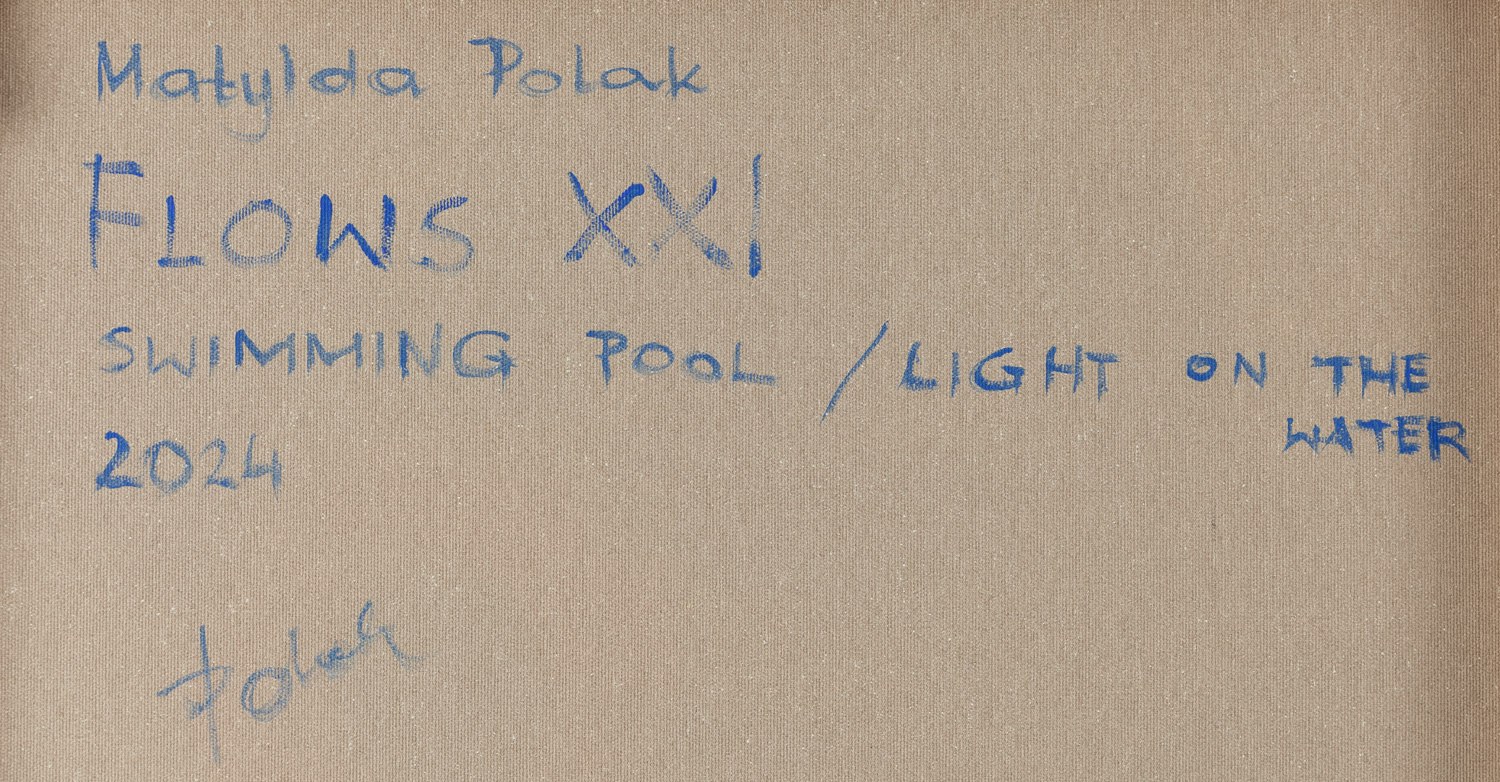 Matylda Polak
FLOWS XXI
SWIMMING POOL / LIGHT ON THE
WATER
2024
Polak